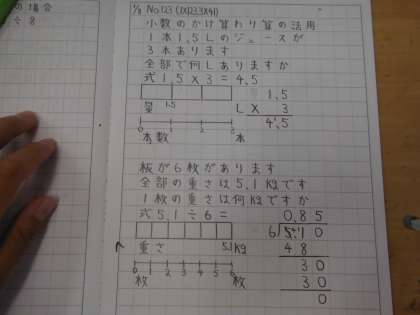 の場合
÷8
1/8 No.123
小数のかけ算わり算の活用
1本1.5Lのジュースが
3本あります
全部で何Lありますか
式1.5×3=4.5
1.5
量 1.5 L × 3
4.5
0 1 2 3
本数 本
板が6枚があります
全部の重さは5.1Kgです
1枚の重さは何Kgですか
式5.1÷6=
0.85
6 5.10
重さ 5.1Kg 48
30
0 1 2 3 4 5 6 30
枚 枚 0